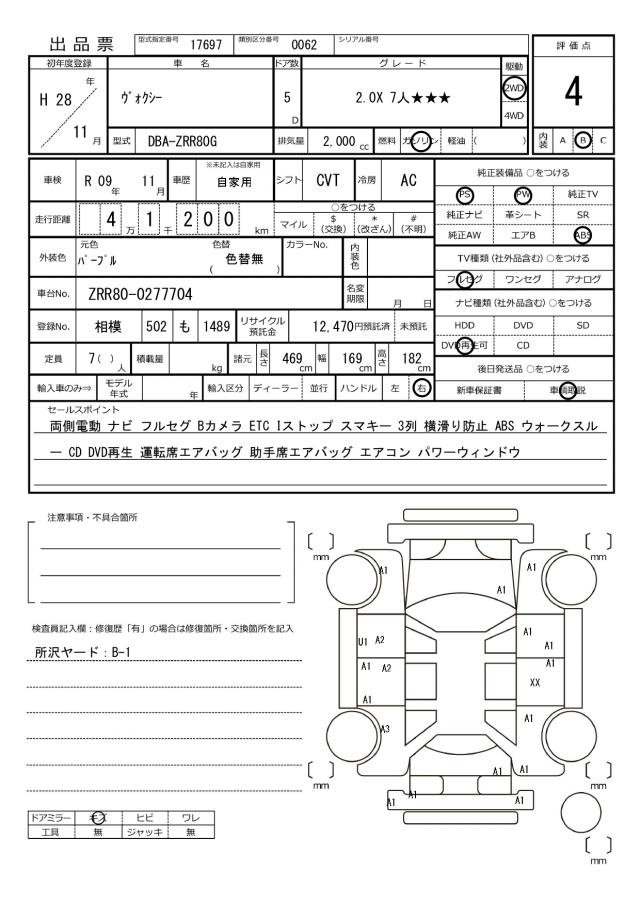 出品票 型式指定番号 17697 類別区分番号 0062 シリアル番号
評価点
4
内装 A B C
初年度登録 車名 ドア数 グレード 駆動
H 28 年 11 月 ヴォクシー 5 D 2.0X 7人★★★ 2WD 4WD
型式 DBA-ZRR80G 排気量 2,000 cc 燃料 ガソリン 軽油 ( )
車検 R 09 年 11 月 車歴 ※未記入は自家用 自家用 シフト CVT 冷房 AC
走行距離 4 万 1 千 2 0 0 km ○をつける マイル $ (交換) * (改ざん) # (不明)
外装色 元色 パープル 色替 ( 色替無 ) カラーNo. 内装色
車台No. ZRR80-0277704 名変期限 月 日
登録No. 相模 502 も 1489 リサイクル預託金 12,470円預託済 未預託
定員 7 ( ) 人 積載量 kg 諸元 長さ 469 cm 幅 169 cm 高さ 182 cm
輸入車のみ⇒ モデル年式 年 輸入区分 ディーラー 並行 ハンドル 左 右
純正装備品 ○をつける
PS PW 純正TV
純正ナビ 革シート SR
純正AW エアB ABS
TV種類 (社外品含む) ○をつける
フルセグ ワンセグ アナログ
ナビ種類 (社外品含む) ○をつける
HDD DVD SD
DVD再生可 CD
後日発送品 ○をつける
新車保証書 車輌取説
セールスポイント
両側電動 ナビ フルセグ Bカメラ ETC Iストップ スマキー 3列 横滑り防止 ABS ウォークスル
ー CD DVD再生 運転席エアバッグ 助手席エアバッグ エアコン パワーウィンドウ
注意事項・不具合箇所
検査員記入欄：修復歴「有」の場合は修復箇所・交換箇所を記入
所沢ヤード：B-1
ドアミラー キズ ヒビ ワレ
工具 無 ジャッキ 無
mm mm
A1 A1
A1
U1 A2 A1 A1
A1 A2 A1
XX
A1
A3 A1
A1 A1
mm mm
A1 A1 A1
mm